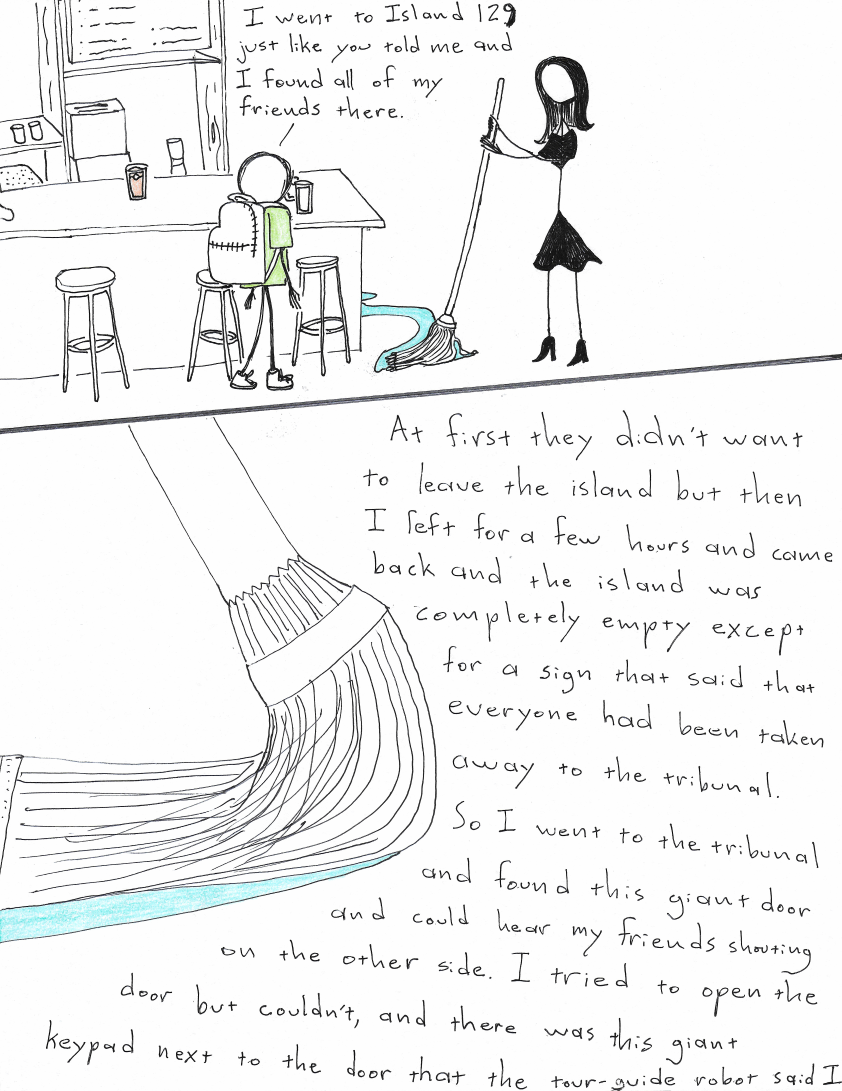 I went to Island 129
just like you told me and
I found all of my
friends there.
At first they didn't want
to leave the island but then
I left for a few hours and came
back and the island was
completely empty except
for a sign that said that
everyone had been taken
away to the tribunal.
So I went to the tribunal
and found this giant door
and could hear my friends shouting
on the other side. I tried to open the
door but couldn't, and there was this giant
keypad next to the door that the tour-guide robot said I